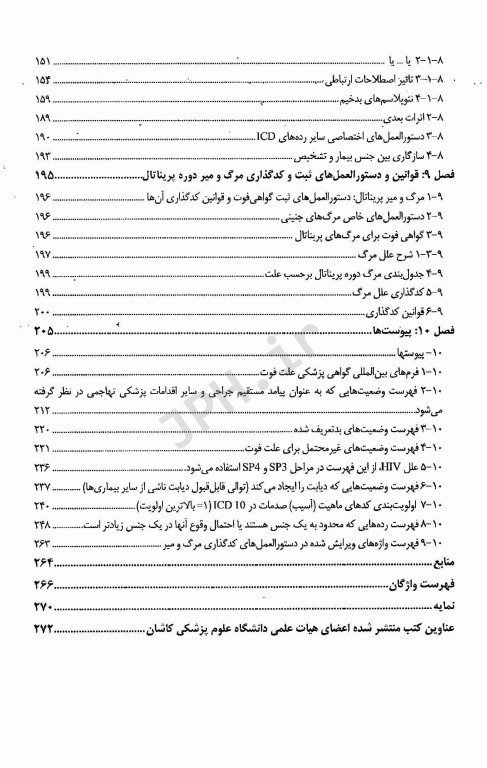 ۸-۱-۲ یا ... یا ........ ۱۵۱
۸-۱-۳ تاثیر اصطلاحات ارتباطی ........ ۱۵۴
۸-۱-۴ نئوپلاسم‌های بدخیم ........ ۱۵۹
۸-۲ اثرات بعدی ........ ۱۸۹
۸-۳ دستورالعمل‌های اختصاصی سایر رده‌های ICD ........ ۱۹۰
۸-۴ سازگاری بین جنس بیمار و تشخیص ........ ۱۹۳
فصل ۹: قوانین و دستورالعمل‌های ثبت و کدگذاری مرگ و میر دوره پریناتال ........ ۱۹۵
۹-۱ مرگ و میر پریناتال: دستورالعمل‌های ثبت گواهی‌فوت و قوانین کدگذاری آن‌ها ........ ۱۹۶
۹-۲ دستورالعمل‌های خاص مرگ‌های جنینی ........ ۱۹۶
۹-۳ گواهی فوت برای مرگ‌های پریناتال ........ ۱۹۶
۹-۳-۱ شرح علل مرگ ........ ۱۹۷
۹-۴ جدول‌بندی مرگ دوره پریناتال برحسب علت ........ ۱۹۹
۹-۵ کدگذاری علل مرگ ........ ۱۹۹
۹-۶ قوانین کدگذاری ........ ۲۰۰
فصل ۱۰: پیوست‌ها ........ ۲۰۵
۱۰- پیوستها ........ ۲۰۶
۱۰-۱ فرم‌های بین‌المللی گواهی پزشکی علت فوت ........ ۲۰۶
۱۰-۲ فهرست وضعیت‌هایی که به عنوان پیامد مستقیم جراحی و سایر اقدامات پزشکی تهاجمی در نظر گرفته
می‌شود ........ ۲۱۲
۱۰-۳ فهرست وضعیت‌های بدتعریف شده ........ ۲۲۰
۱۰-۴ فهرست وضعیت‌های غیرمحتمل برای علت فوت ........ ۲۲۱
۱۰-۵ علل HIV، از این فهرست در مراحل SP3 و SP4 استفاده می‌شود ........ ۲۳۶
۱۰-۶ فهرست وضعیت‌هایی که دیابت را ایجاد می‌کند (توالی قابل‌قبول دیابت ناشی از سایر بیماری‌ها) ........ ۲۳۷
۱۰-۷ اولویت‌بندی کدهای ماهیت (آسیب) صدمات در ICD 10 (۱= بالاترین اولویت) ........ ۲۴۰
۱۰-۸ فهرست رده‌هایی که محدود به یک جنس هستند یا احتمال وقوع آنها در یک جنس زیادتر است ........ ۲۴۸
۱۰-۹ فهرست واژه‌های ویرایش شده در دستورالعمل‌های کدگذاری مرگ و میر ........ ۲۶۳
منابع ........ ۲۶۴
فهرست واژگان ........ ۲۶۶
نمایه ........ ۲۷۰
عناوین کتب منتشر شده اعضای هیات علمی دانشگاه علوم پزشکی کاشان ........ ۲۷۲
JPH.ir